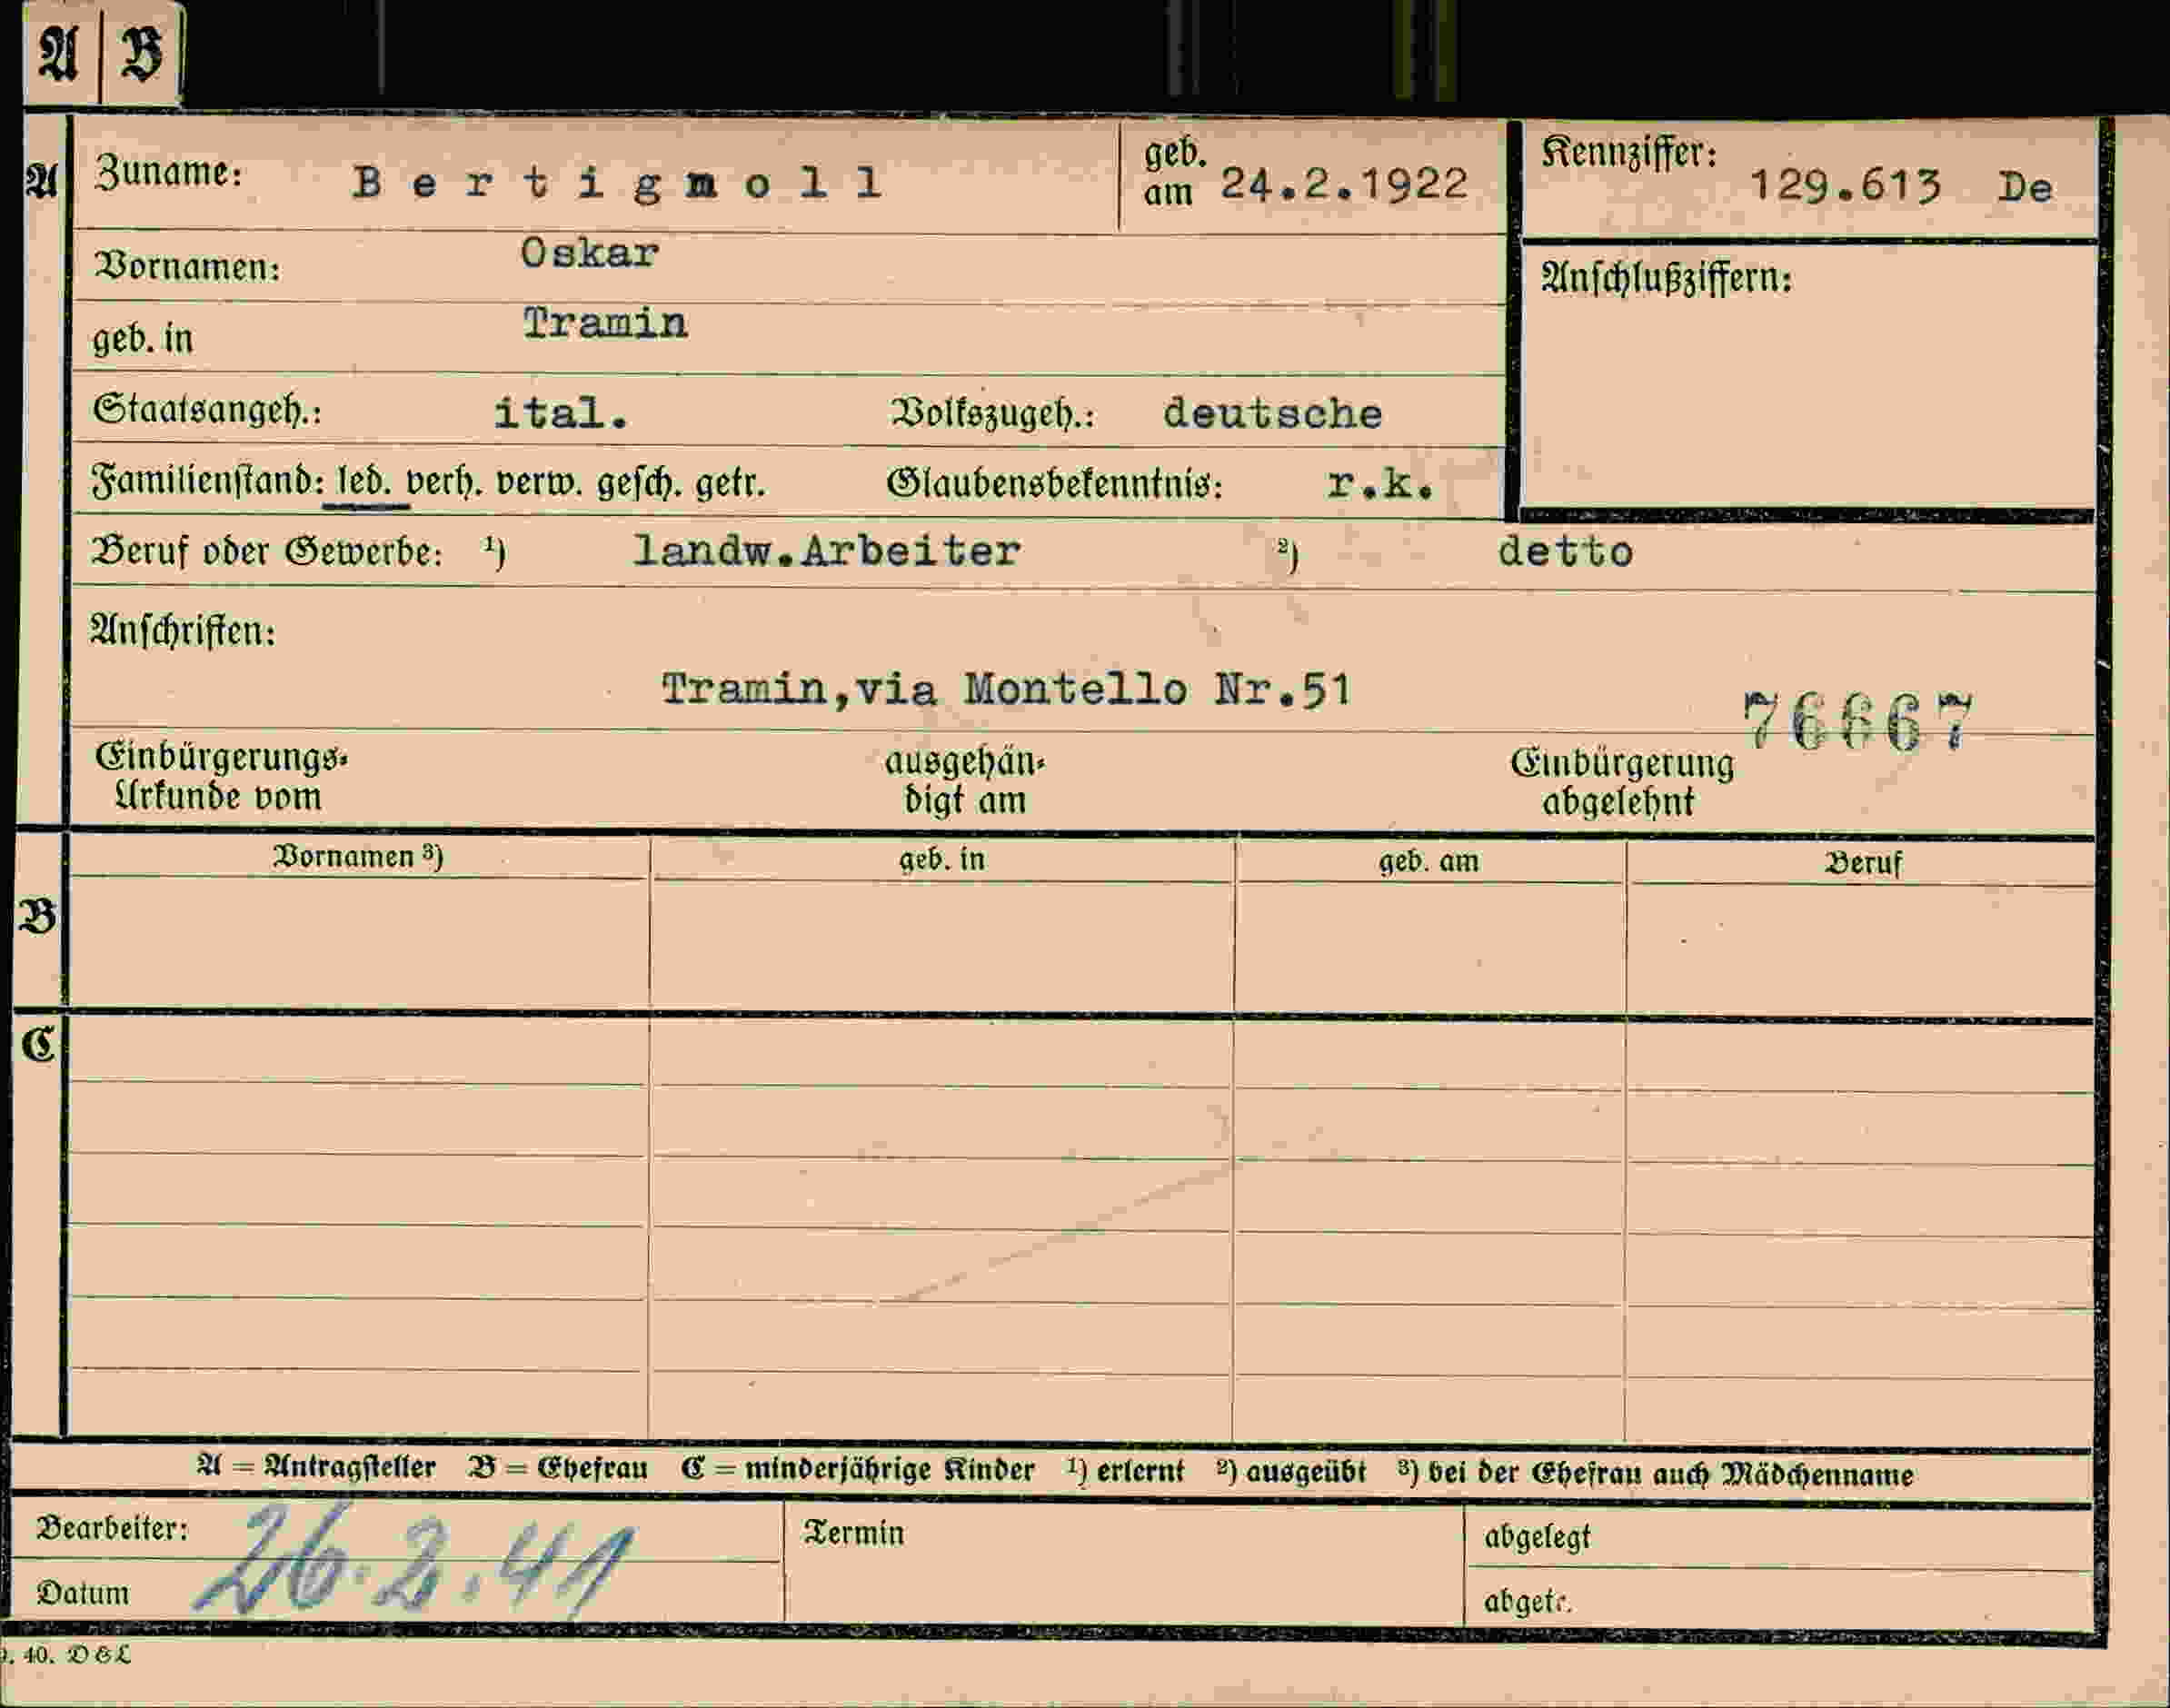 A B
A Zuname: Bertigmoll geb. am 24.2.1922 Kennziffer: 129.613 De
Vornamen: Oskar
Anschlußziffern:
geb. in Tramin
Staatsangeh.: ital. Volkszugeh.: deutsche
Familienstand: led. verh. verw. gesch. getr. Glaubensbekenntnis: r.k.
Beruf oder Gewerbe: ¹) landw.Arbeiter ²) detto
Anschriften:
Tramin,via Montello Nr.51
76667
Einbürgerungs- ausgehän- Einbürgerung
Urkunde vom digt am abgelehnt
Vornamen ³) geb. in geb. am Beruf
B
C
A = Antragsteller B = Ehefrau C = minderjährige Kinder ¹) erlernt ²) ausgeübt ³) bei der Ehefrau auch Mädchenname
Bearbeiter: Termin abgelegt
26.2.41
Datum abgetr.
40. D&L